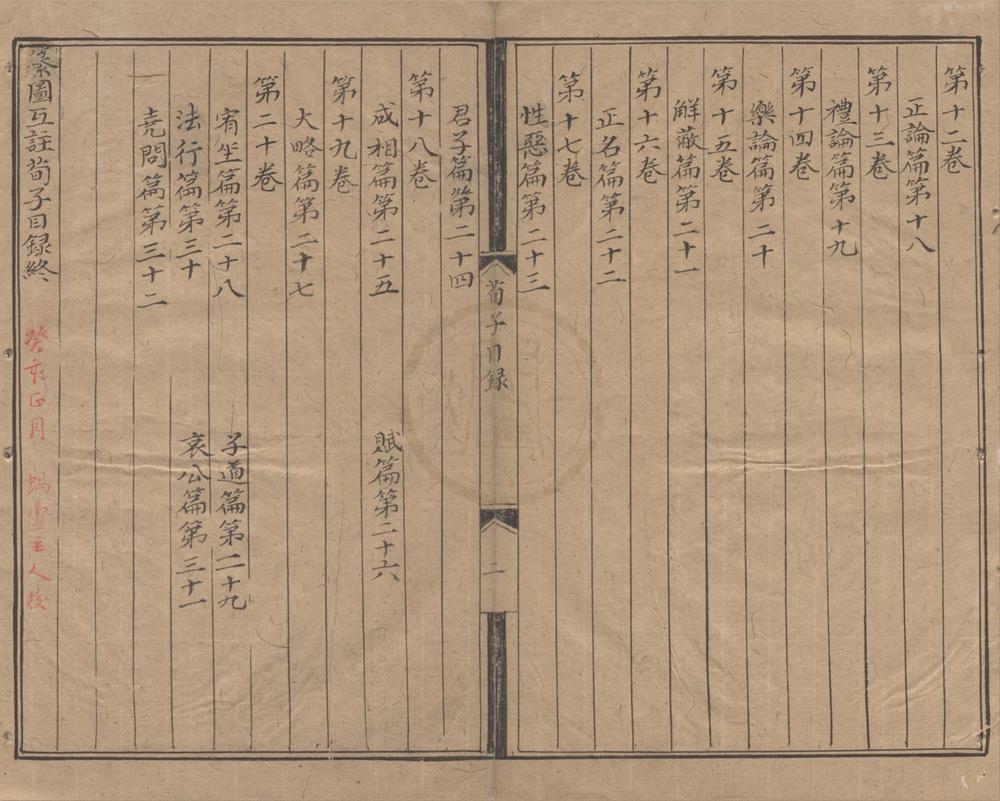 第十二卷
正論篇第十八
第十三卷
禮論篇第十九
第十四卷
樂論篇第二十
第十五卷
解蔽篇第二十一
第十六卷
正名篇第二十二
第十七卷
性惡篇第二十三
荀子目録
二
君子篇第二十四
第十八卷
成相篇第二十五
賦篇第二十六
第十九卷
大略篇第二十七
第二十卷
宥坐篇第二十八
子道篇第二十九
法行篇第三十
哀公篇第三十一
堯問篇第三十二
纂圖互註荀子目録終
癸亥正月 蝸雪主人校